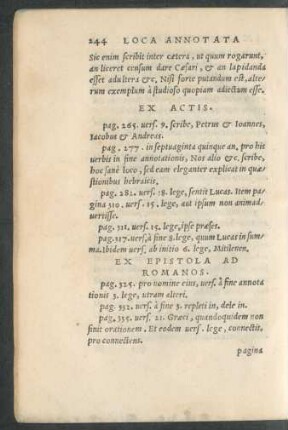 244 LOCA ANNOTATA
Sic enim scribit inter cætera, ut quum rogarunt,
an liceret censum dare Cæsari, & an lapidanda
esset adultera &c. Nisi forte putandum est, alte,
rum exemplum à studioso quopiam adiectum esse.
EX ACTIS.
pag. 265. uers. 9. scribe, Petrus & Ioannes,
Iacobus & Andreas.
pag. 277. in septuaginta quinque an, pro his
uerbis in fine annotationis, Nos alio &c. scribe,
hoc sanè loco, sed eam eleganter explicat in quæ
stionibus hebraicis,
pag. 282. uers. 18. lege, sentit Lucas. Item pa
gina 310. uers. 15. lege, aut ipsum non animad
uertisse.
pag. 311. uers. 15. lege, ipse præses.
pag. 317. uers, à fine 8. lege, quum Lucas in sum
ma. Ibidem uers, ab initio 6. lege, Mitilenen,
EX EPISTOLA AD
ROMANOS.
pag. 325. pro nomine eius, uers. à fine annota
tionis 3. lege, utram alteri.
pag. 332. uers. à fine 3. repleti in, dele in.
pag. 335. uers. 21. Græci, quandoquidem non
finit orationem. Et eodem uers. lege, connectit,
pro connectens.
pagina